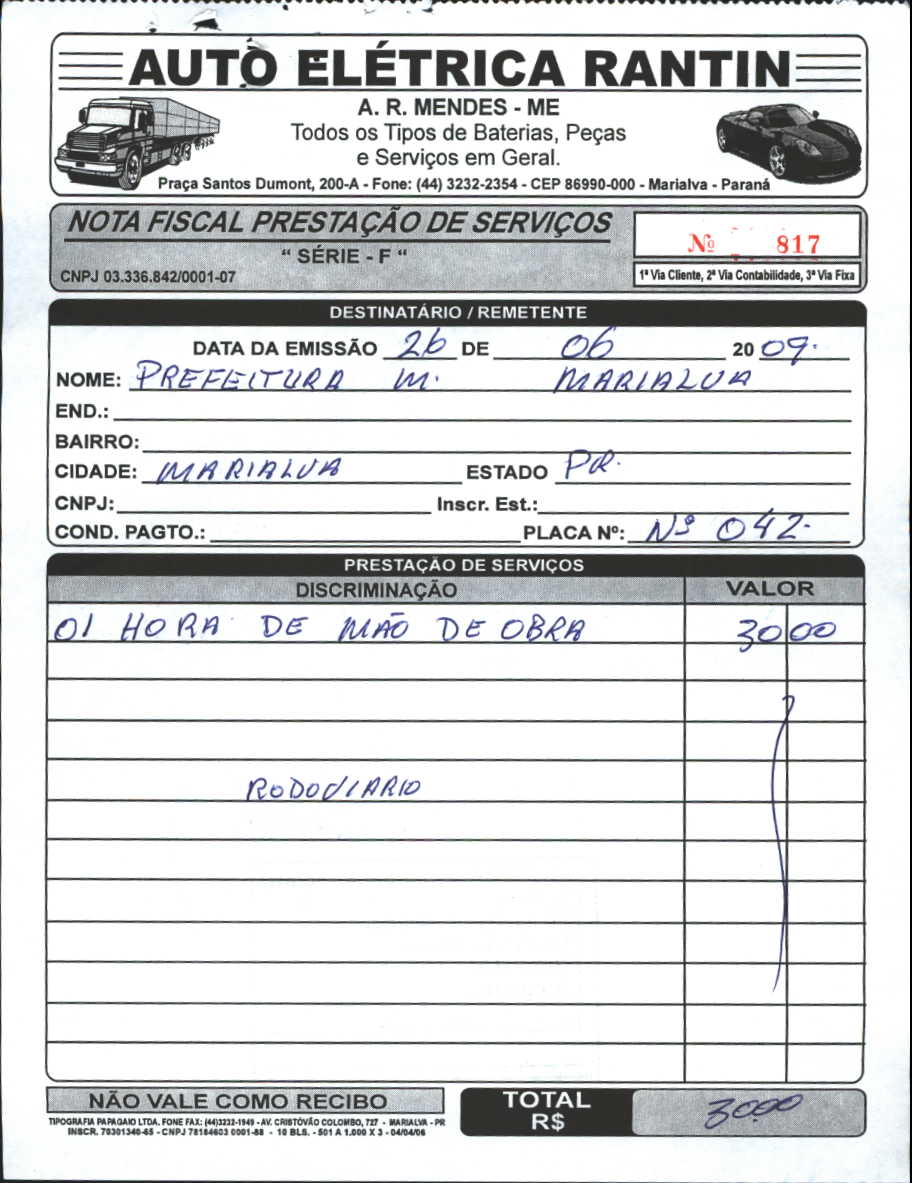 AUTO ELÉTRICA RANTIN
A. R. MENDES - ME
Todos os Tipos de Baterias, Peças
e Serviços em Geral.
Praça Santos Dumont, 200-A - Fone: (44) 3232-2354 - CEP 86990-000 - Marialva - Paraná
NOTA FISCAL PRESTAÇÃO DE SERVIÇOS
“ SÉRIE - F “
Nº 817
CNPJ 03.336.842/0001-07
1ª Via Cliente, 2ª Via Contabilidade, 3ª Via Fixa
DESTINATÁRIO / REMETENTE
DATA DA EMISSÃO 26 DE 06 2009.
NOME: PREFEITURA M. MARIALVA
END.:
BAIRRO:
CIDADE: MARIALVA ESTADO PR.
CNPJ: Inscr. Est.:
COND. PAGTO.: PLACA Nº: Nº 042.
PRESTAÇÃO DE SERVIÇOS
DISCRIMINAÇÃO VALOR
01 HORA DE MÃO DE OBRA 30 00
RODOVIARIO
NÃO VALE COMO RECIBO
TOTAL
R$ 30 00
TIPOGRAFIA PAPAGAIO LTDA. FONE FAX: (44)3232-1949 - AV. CRISTÓVÃO COLOMBO, 727 - MARIALVA - PR
INSCR. 70301340-65 - CNPJ 78184603 0001-88 - 10 BLS. - 501 A 1.000 X 3 - 04/04/06